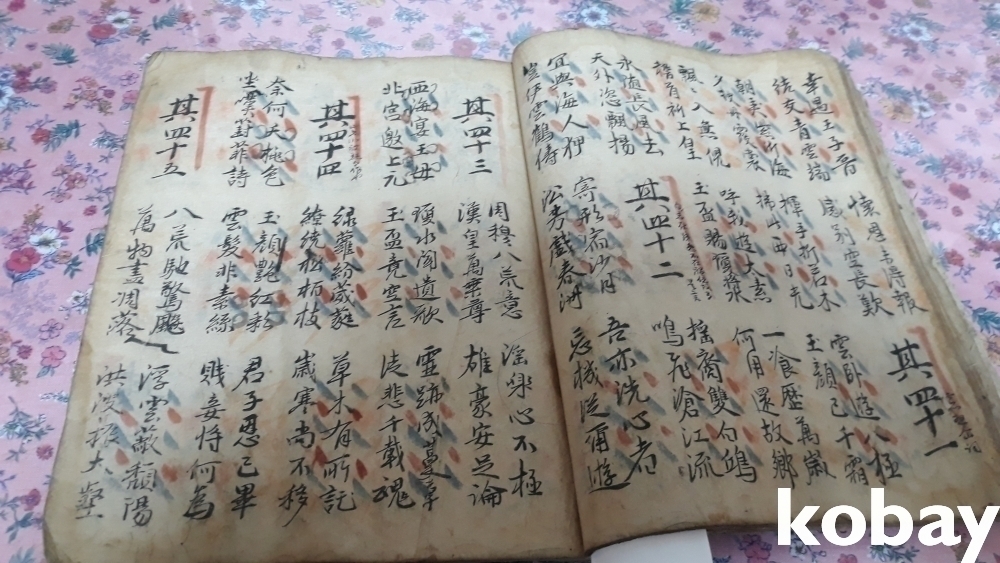 幸遇王子晉
結交青雲端
懷恩未得報
感別空長歎
其四十一
朝弄紫泥海
夕披丹霞裳
揮手折若木
拂此西日光
雲臥遊八極
玉顏已千霜
飄飄入無倪
稽首祈上皇
呼我遊太素
玉盃賜瓊漿
一飡歷萬歲
何用還故鄉
永隨長風去
天外恣飄揚
其四十二
搖裔雙白鷗
鳴飛滄江流
宜與海人狎
豈伊雲鶴儔
寄形宿沙月
沿芳戲春洲
吾亦洗心者
忘機從爾遊
其四十三
周穆八荒意
漢皇萬乘尊
淫樂心不極
雄豪安足論
西海宴王母
北宮邀上元
瑤水聞遺歌
玉盃竟空言
靈跡成蔓草
徒悲千載魂
其四十四
綠蘿紛葳蕤
繞繞松柏枝
草木有所託
歲寒尚不移
奈何夭桃色
坐嘆葑菲詩
玉顏艷紅彩
雲髮非素絲
君子恩已畢
賤妾將何為
其四十五
八荒馳驚飈
萬物盡凋落
浮雲蔽頹陽
洪波振大壑
kobay